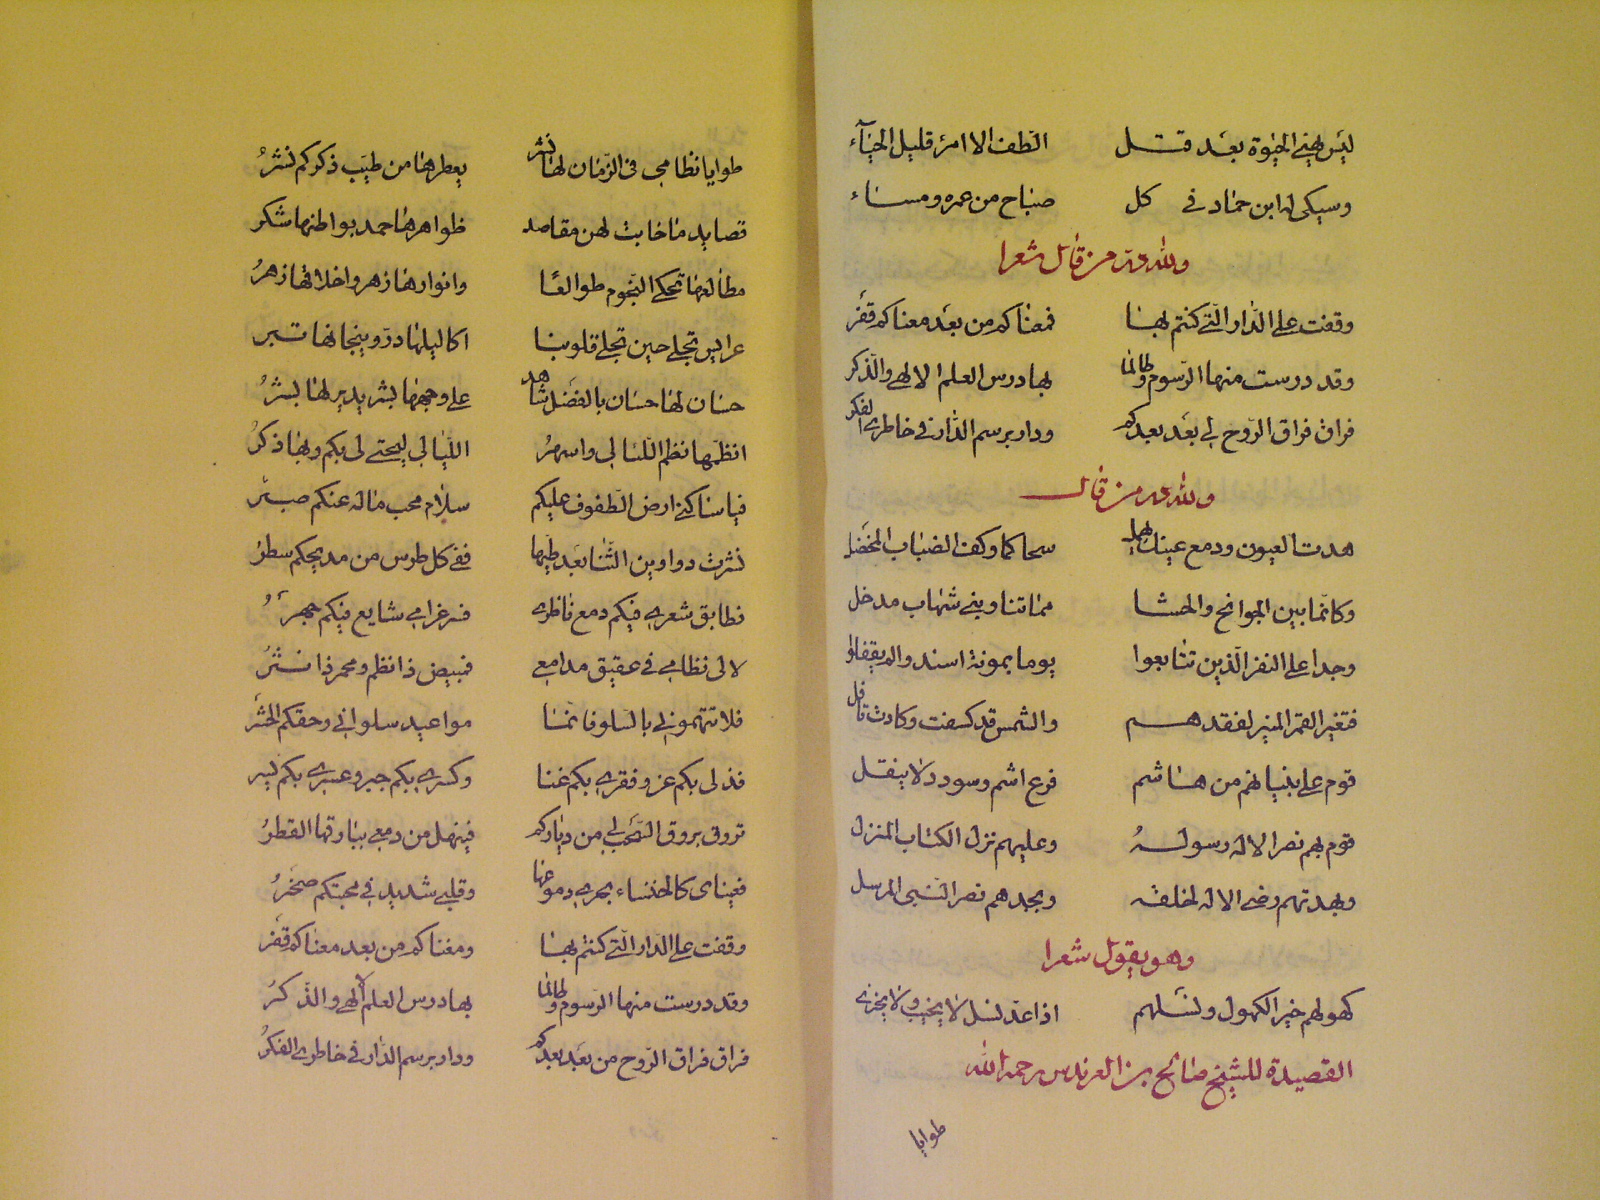 ليس يهنى الحيوة بعد قتل الطف الا امرء قليل الحيآء
وسيبكى له ابن حماد فى كل صباح من عمره ومساء
ولله در من قال شعرا
وقفت على الدار التى كنتم بها فمغناكم من بعد معناكم قفر
وقد درست منها الرسوم وطالما بها درس العلم الالهى والذكر
فراق فراق الروح لى بعد بعدكم ودار برسم الدار فى خاطرى الفكر
ولله در من قال
هدت العيون ودمع عينك يهمل سحا كما وكف الضباب المخضل
وكانما بين الجوانح والحشا مما تناوبنى شهاب مدخل
وجدا على النفر الذين تتابعوا يوما بموتة اسندوا لم يقفلوا
فتغير القمر المنير لفقدهم والشمس قد كسفت وكادت تافل
قوم على بنيانهم من هاشم فرع اشم وسودد لا ينقل
قوم بهم نصر الاله رسوله وعليهم نزل الكتاب المنزل
وبهديهم رضى الاله لخلقه وبجدهم نصر النبى المرسل
وهو يقول شعرا
كهولهم خير الكهول ونسلهم اذا عد نسل لا يخيب ولا يخزى
القصيدة للشيخ صالح بن العرندس رحمه الله
طوايا
طوايا نظامى فى الزمان لها نشر يعطرها من طيب ذكركم نشر
قصايد ما خابت لهن مقاصد ظواهرها حمد بواطنها شكر
مطالعها تحكى النجوم طوالعا وانوارها زهر واخلاقها زهر
عرايس تجلى حين تجلى قلوبنا اكاليلها در وتيجانها تبر
حسان لها حسان بالفضل شاهد على وجهها بشر يدير لها بشر
انظمها نظم اللئالى واسهر الليالى ليحيى لى بكم وبها ذكر
فيا ساكنى ارض الطفوف عليكم سلام محب ماله عنكم صبر
نشرت دواوين الثنا بعد طيها ففى كل طرس من مديحكم سطر
فطابق شعرى فيكم دمع ناظرى فسر غرامى شايع فيكم جهر
لالى نظامى فى عقيق مدامعى فمبيض ذا نظم ومحمر ذا نثر
فلا تتهمونى بالسلو فانما مواعيد سلوانى وحقكم الحشر
فذلى بكم عز وفقرى بكم غنا وكسرى بكم جبر وعسرى بكم يسر
تروق بروق السحب لى من دياركم فينهل من دمعى ببارقها القطر
فعيناى كالخنساء تجرى دموعها وقلبى شديد فى محبتكم صخر
وقفت على الدار التى كنتم بها ومغناكم من بعد معناكم قفر
وقد درست منها الرسوم وطالما بها درس العلم الالهى والذكر
فراق فراق الروح من بعد بعدكم ودار برسم الدار فى خاطرى الفكر